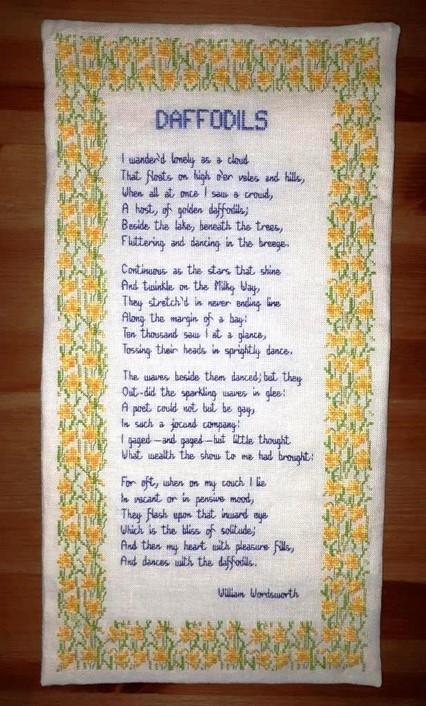 DAFFODILS
I wander'd lonely as a cloud
That floats on high o'er vales and hills,
When all at once I saw a crowd,
A host, of golden daffodils;
Beside the lake, beneath the trees,
Fluttering and dancing in the breeze.
Continuous as the stars that shine
And twinkle on the Milky Way,
They stretch'd in never ending line
Along the margin of a bay:
Ten thousand saw I at a glance,
Tossing their heads in sprightly dance.
The waves beside them danced; but they
Out-did the sparkling waves in glee:
A poet could not but be gay,
In such a jocund company!
I gazed—and gazed—but little thought
What wealth the show to me had brought:
For oft, when on my couch I lie
In vacant or in pensive mood,
They flash upon that inward eye
Which is the bliss of solitude;
And then my heart with pleasure fills,
And dances with the daffodils.
William Wordsworth